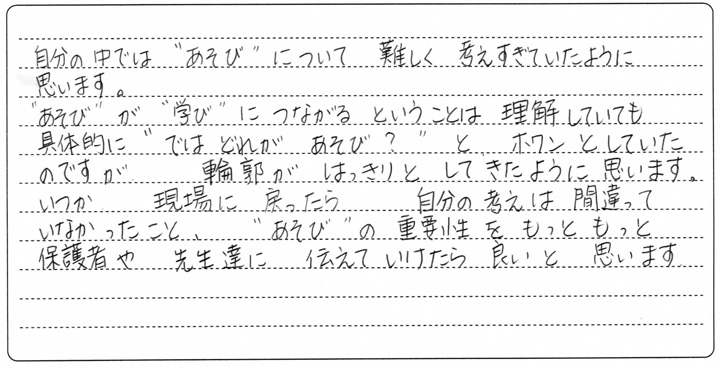 自分の中では "あそび" について 難しく 考えすぎていたように
思います。
"あそび" が "学び" に つながる ということは 理解していても
具体的に " では どれが あそび？ " と ホワン としていた
のですが 輪郭が はっきりと してきたように 思います。
いつか 現場に 戻ったら 自分の 考えは 間違って
いなかったこと、 "あそび" の 重要性を もっと もっと
保護者や 先生達に 伝えて いけたら 良いと 思います